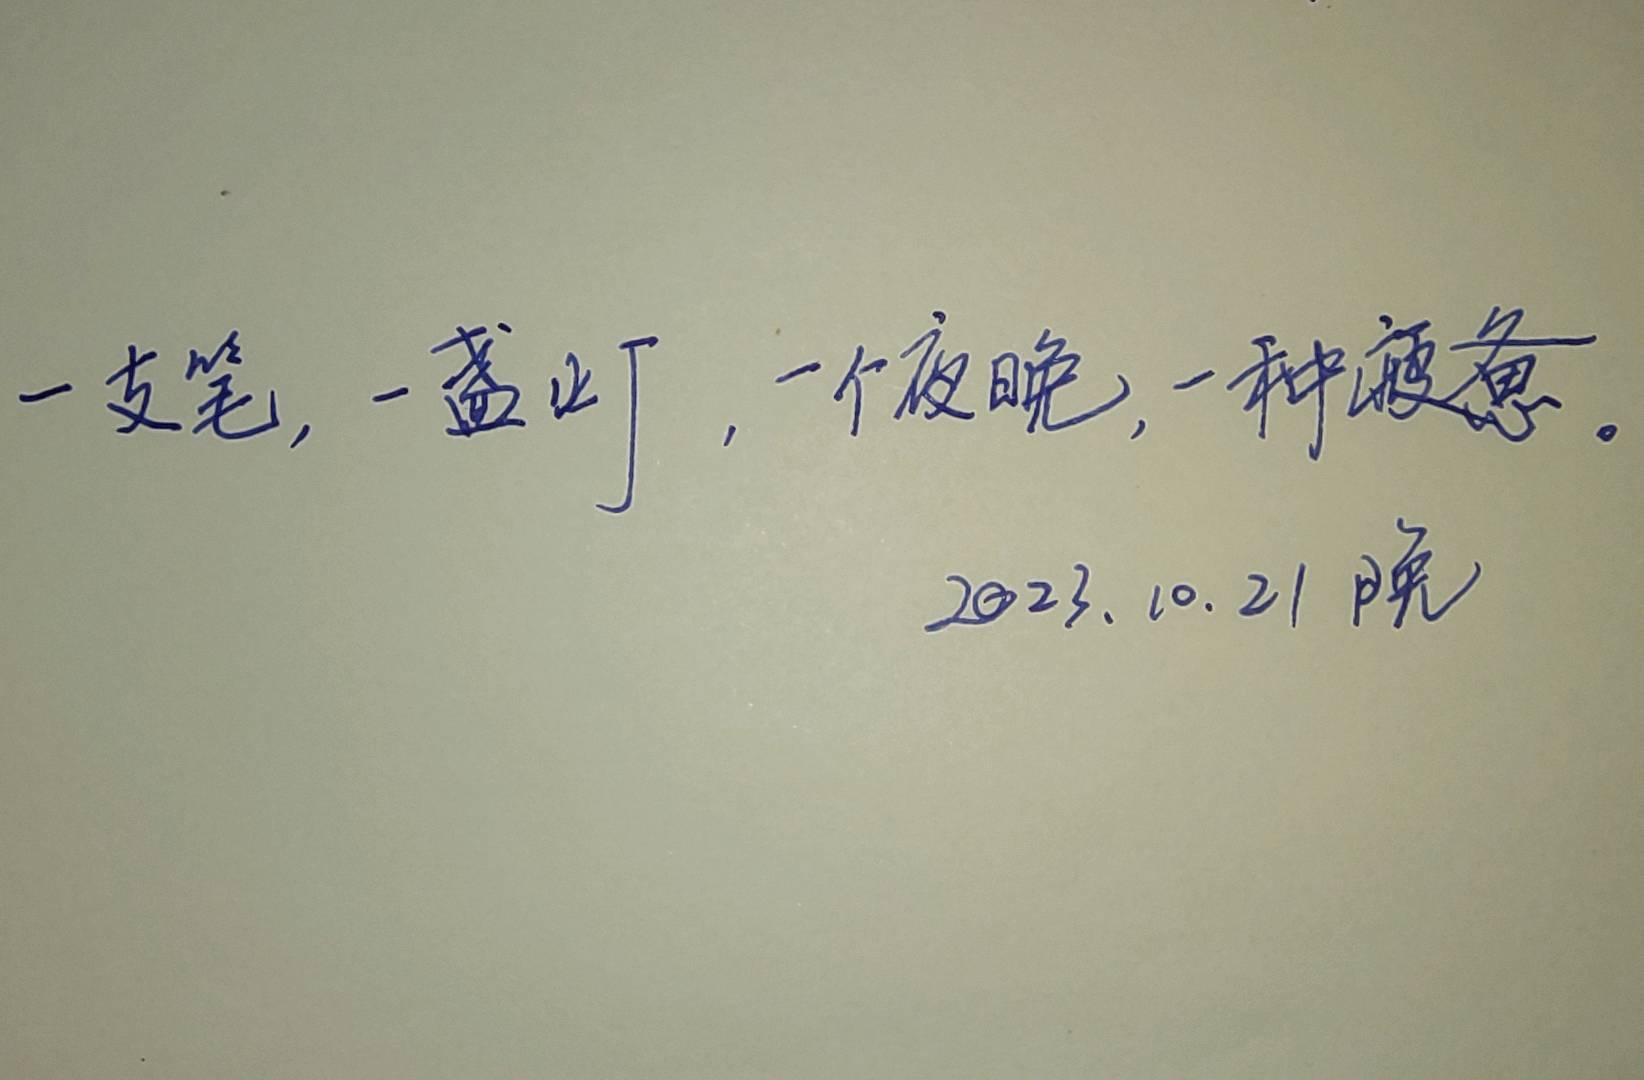 一支笔，一盏灯，一个夜晚，一种疲惫。
2023.10.21 晚